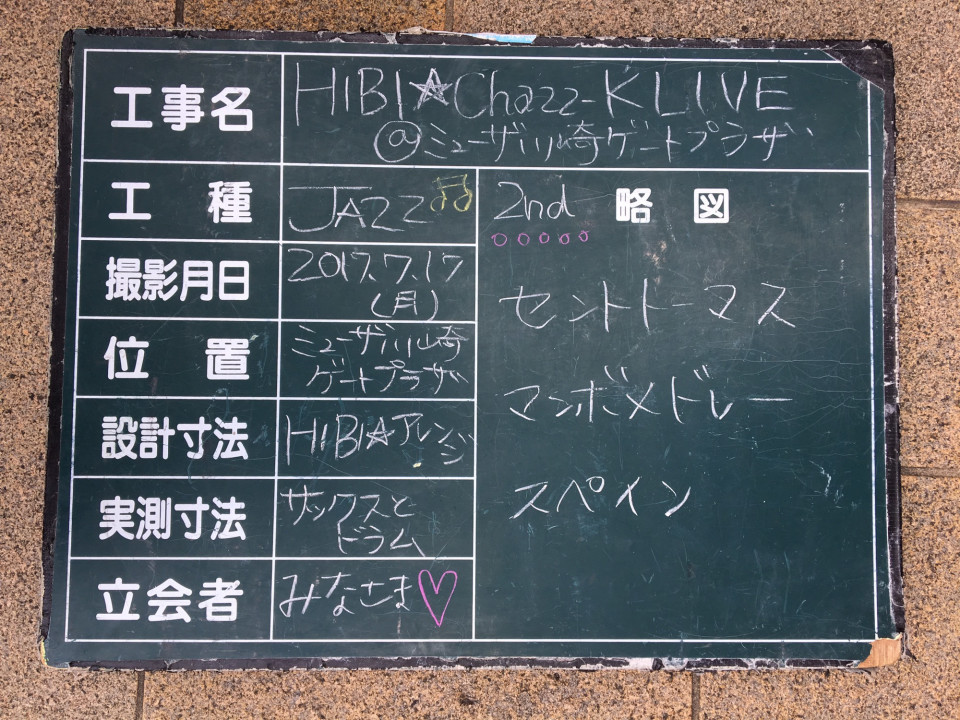 工事名
HIBI☆Chazz-K LIVE
@ミューザ川崎ゲートプラザ
工種
JAZZ♫
撮影月日
2017.7.17
(月)
位置
ミューザ川崎
ゲートプラザ
設計寸法
HIBI☆アレンジ
実測寸法
サックスと
ドラム
立会者
みなさま♡
2nd 略図
セントトーマス
マンボメドレー
スペイン